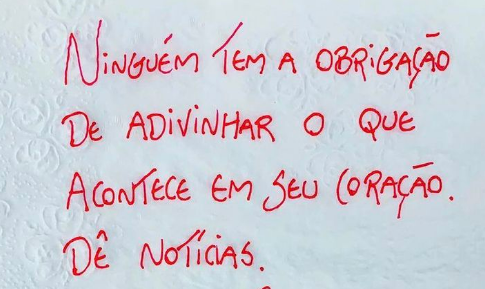 Ninguém tem a obrigação
de adivinhar o que
acontece em seu coração.
Dê notícias.